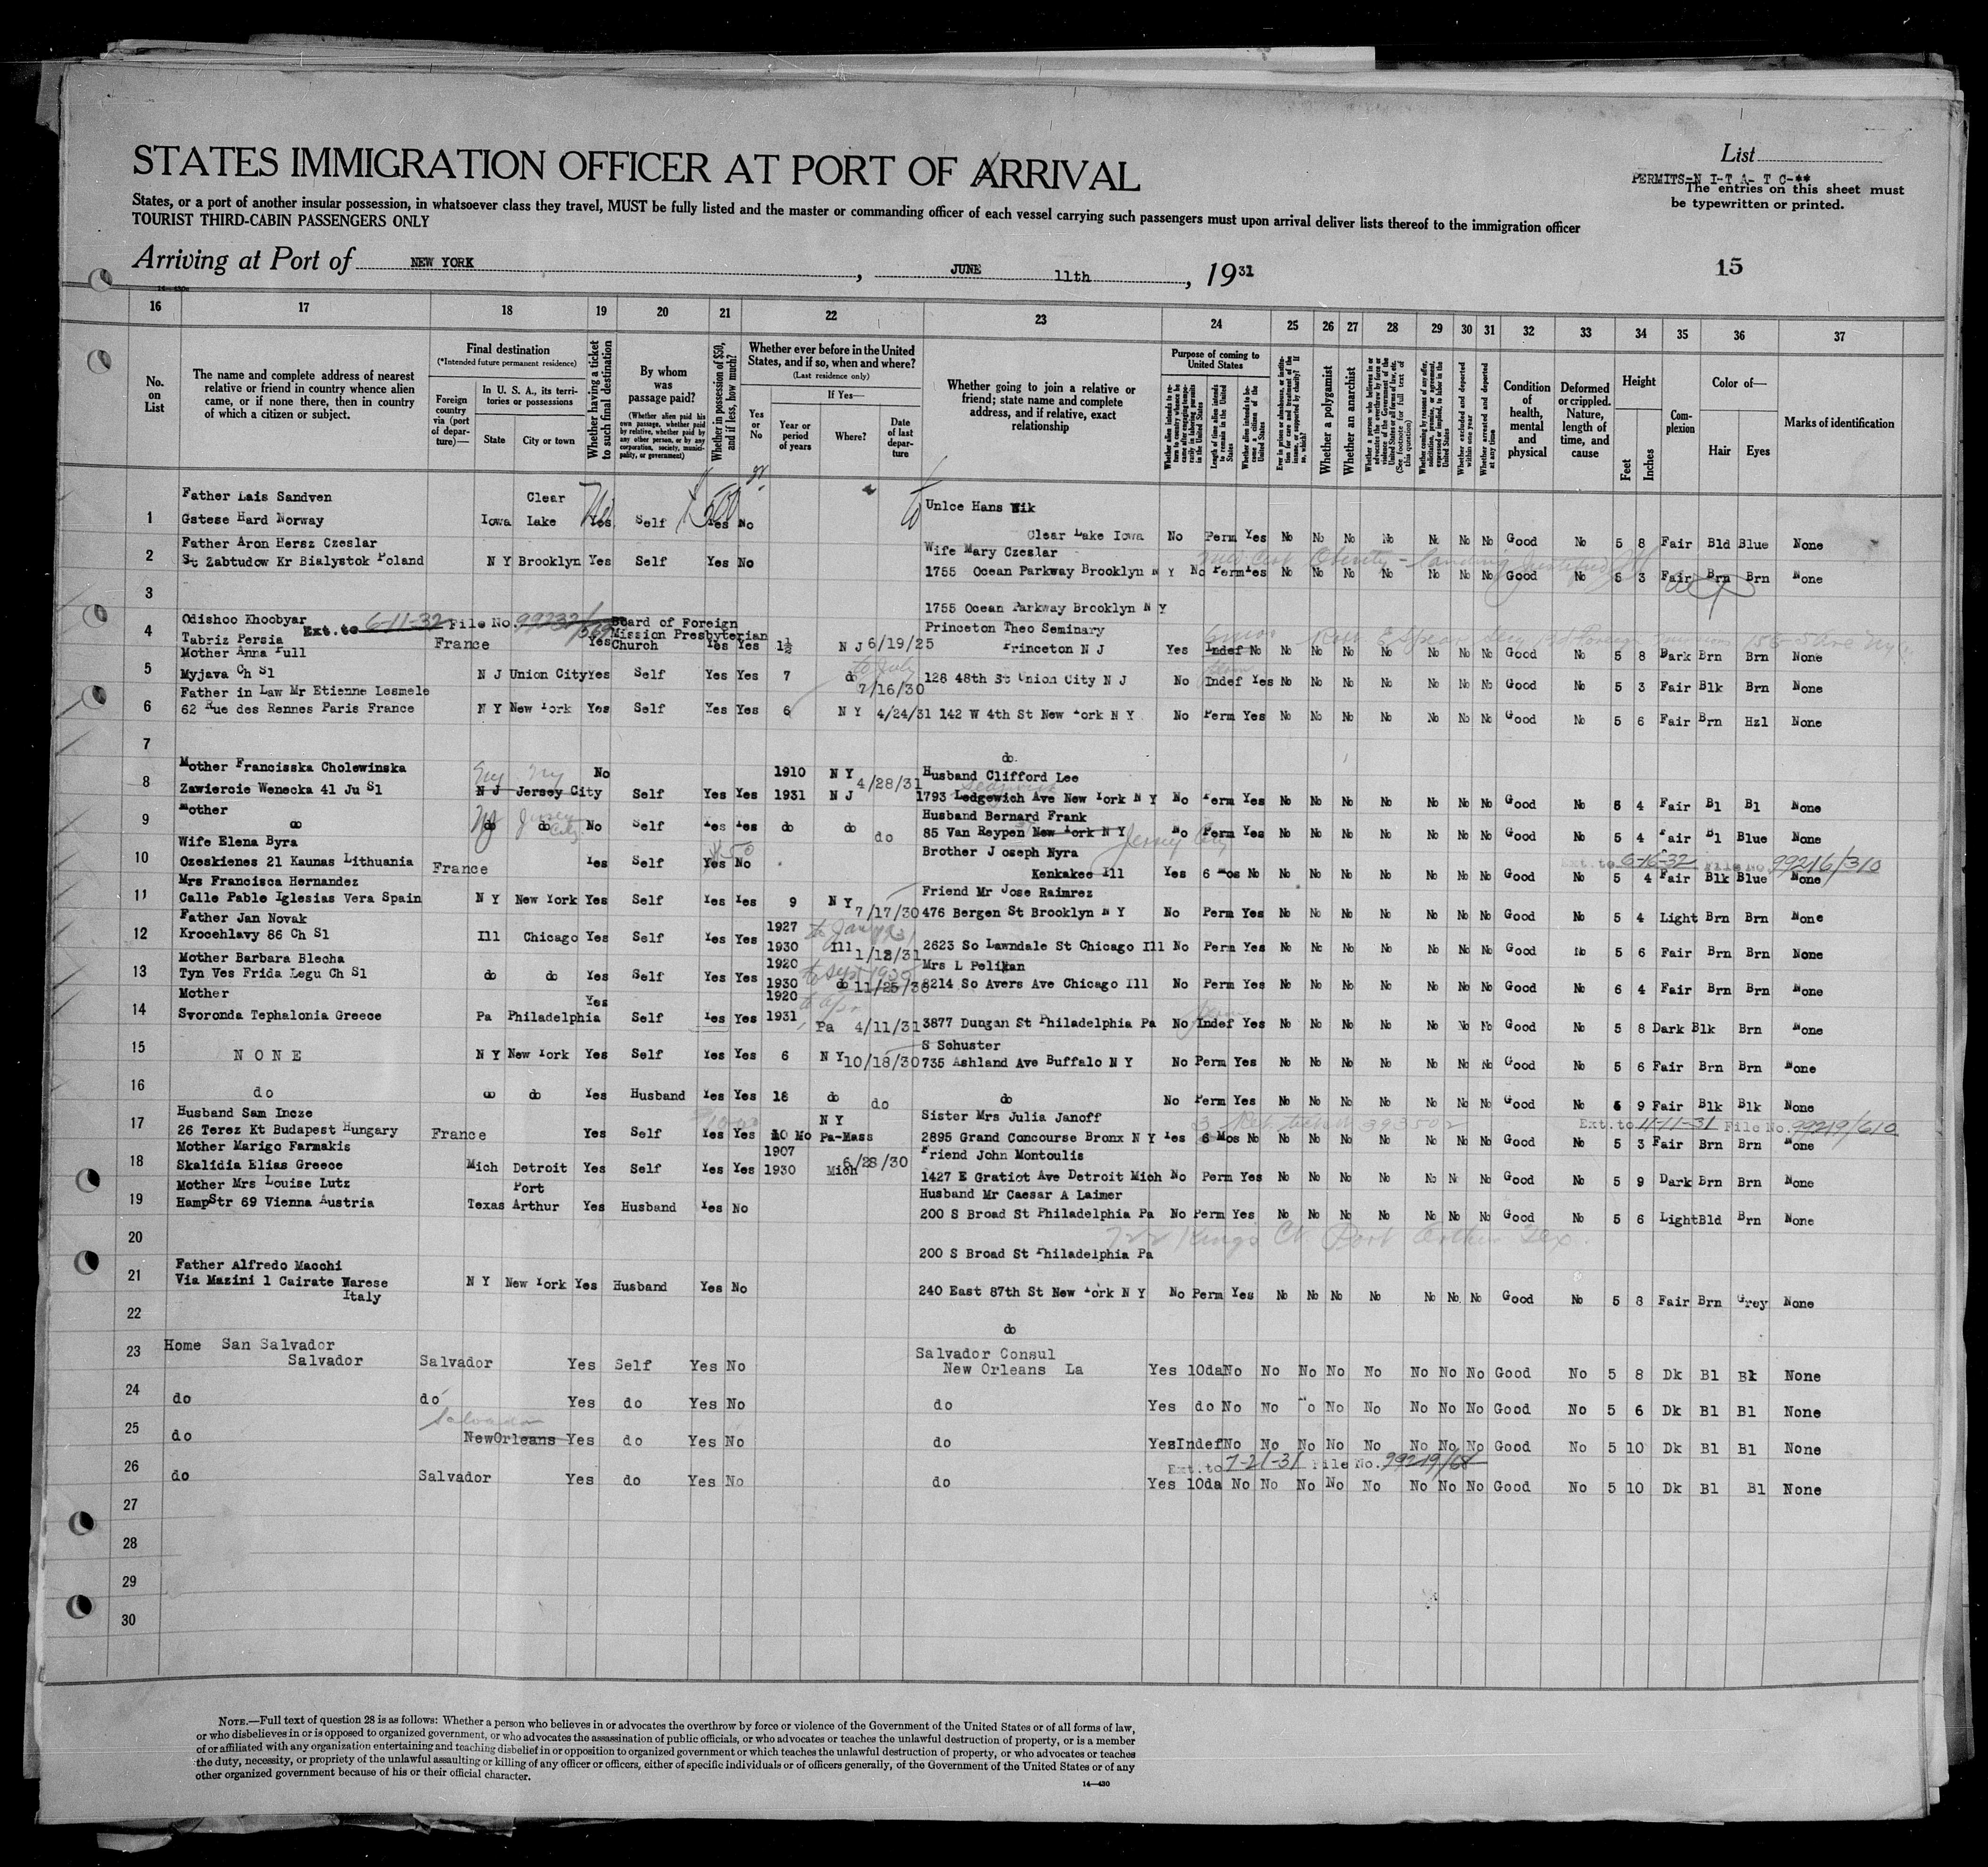 STATES IMMIGRATION OFFICER AT PORT OF ARRIVAL
List
PERMITS-N I-T A- T C-**
The entries on this sheet must
be typewritten or printed.
States, or a port of another insular possession, in whatsoever class they travel, MUST be fully listed and the master or commanding officer of each vessel carrying such passengers must upon arrival deliver lists thereof to the immigration officer
TOURIST THIRD-CABIN PASSENGERS ONLY
Arriving at Port of NEW YORK, JUNE 11th, 1931
15
16 17 18 19 20 21 22 23 24 25 26 27 28 29 30 31 32 33 34 35 36 37
No. on List
The name and complete address of nearest relative or friend in country whence alien came, or if none there, then in country of which a citizen or subject.
Final destination
(*Intended future permanent residence)
Foreign country via (port of departure)—
In U. S. A., its territories or possessions
State
City or town
Whether having a ticket to such final destination
By whom was passage paid?
(Whether alien paid his own passage, whether paid by relative, whether paid by any other person, or by any corporation, society, municipality, or government)
Whether in possession of $50, and if less, how much?
Whether ever before in the United States, and if so, when and where?
(Last residence only)
Yes or No
If Yes—
Year or period of years
Where?
Date of last departure
Whether going to join a relative or friend; state name and complete address, and if relative, exact relationship
Purpose of coming to United States
Whether a polygamist
Whether an anarchist
Condition of health, mental and physical
Deformed or crippled. Nature, length of time, and cause
Height
Feet
Inches
Complexion
Color of—
Hair
Eyes
Marks of identification
Father Lais Sandven Clear Unlce Hans Wik
1 Gstese Hard Norway Iowa Lake Yes Self Yes No $500
Clear Lake Iowa No Perm Yes No No No No No No No Good No 5 8 Fair Bld Blue None
Father Aron Hersz Czeslar Wife Mary Czeslar
2 St Zabtudow Kr Bialystok Poland N Y Brooklyn Yes Self Yes No 1755 Ocean Parkway Brooklyn N Y No Perm Yes No No No No No No No Good No 5 3 Fair Brn Brn None
3 1755 Ocean Parkway Brooklyn N Y
Odishoo Khoobyar Ext. to 6-11-32 File No. Board of Foreign Princeton Theo Seminary
4 Tabriz Persia France Yes Mission Presbyterian Church Yes Yes 1½ N J 6/19/25 Princeton N J Yes Indef No No No No No No No No Good No 5 8 Dark Brn Brn None
Mother Anna Pull
5 Myjava Ch Sl N J Union City Yes Self Yes Yes 7 do 7/16/30 128 48th St Union City N J No Indef Yes No No No No No No No Good No 5 3 Fair Blk Brn None
Father in Law Mr Etienne Lesmele
6 62 Rue des Rennes Paris France N Y New York Yes Self Yes Yes 6 N Y 4/24/31 142 W 4th St New York N Y No Perm Yes No No No No No No No Good No 5 6 Fair Brn Hzl None
7 do
Mother Francisska Cholewinska No 1910 N Y 4/28/31 Husband Clifford Lee
8 Zawiercie Wenecka 41 Ju Sl N J Jersey City Self Yes Yes 1931 N J 1793 Ledgewich Ave New York N Y No Perm Yes No No No No No No No Good No 5 4 Fair Bl Bl None
Mother Husband Bernard Frank
9 do do do Jersey City No Self Yes Yes do do do 85 Van Reypen New York N Y Jersey City No Perm Yes No No No No No No No Good No 5 4 Fair Bl Blue None
Wife Elena Byra $50 Brother Joseph Nyra Ext. to 6-16-32 File No. 99216/310
10 Ozeskienes 21 Kaunas Lithuania France Yes Self Yes No Kenkakee Ill Yes 6 Mos No No No No No No No No Good No 5 4 Fair Blk Blue None
Mrs Francisca Hernandez Friend Mr Jose Raimrez
11 Calle Pable Iglesias Vera Spain N Y New York Yes Self Yes Yes 9 N Y 7/17/30 476 Bergen St Brooklyn N Y No Perm Yes No No No No No No No Good No 5 4 Light Brn Brn None
Father Jan Novak 1927
12 Krocehlavy 86 Ch Sl Ill Chicago Yes Self Yes Yes 1930 Ill 1/12/31 2623 So Lawndale St Chicago Ill No Perm Yes No No No No No No No Good No 5 6 Fair Brn Brn None
Mother Barbara Blecha 1920 Mrs L Pelikan
13 Tyn Ves Frida Legu Ch Sl do do Yes Self Yes Yes 1930 do 11/25/30 2214 So Avers Ave Chicago Ill No Perm Yes No No No No No No No Good No 6 4 Fair Brn Brn None
Mother Yes 1920
14 Svoronda Tephalonia Greece Pa Philadelphia Self Yes Yes 1931 Pa 4/11/31 3877 Dungan St Philadelphia Pa No Indef Yes No No No No No No No Good No 5 8 Dark Blk Brn None
S Schuster
15 N O N E N Y New York Yes Self Yes Yes 6 N Y 10/18/30 735 Ashland Ave Buffalo N Y No Perm Yes No No No No No No No Good No 5 6 Fair Brn Brn None
16 do do do Yes Husband Yes Yes 18 do do do No Perm Yes No No No No No No No Good No 5 9 Fair Blk Blk None
Husband Sam Incze N Y Sister Mrs Julia Janoff Ext. to 11-11-31 File No. 99219/610
17 26 Terez Kt Budapest Hungary France Yes Self Yes Yes 10 Mo Pa-Mass 2895 Grand Concourse Bronx N Y Yes 6 Mos No No No No No No No No Good No 5 3 Fair Brn Brn None
Mother Marigo Farmakis 1907 6/28/30 Friend John Montoulis
18 Skalidia Elias Greece Mich Detroit Yes Self Yes Yes 1930 Mich 1427 E Gratiot Ave Detroit Mich No Perm Yes No No No No No No No Good No 5 9 Dark Brn Brn None
Mother Mrs Louise Lutz Port Husband Mr Caesar A Laimer
19 HampStr 69 Vienna Austria Texas Arthur Yes Husband Yes No 200 S Broad St Philadelphia Pa No Perm Yes No No No No No No No Good No 5 6 Light Bld Brn None
722 Kings Ct Port Arthur Tex.
20 200 S Broad St Philadelphia Pa
Father Alfredo Macchi
21 Via Mazini 1 Cairate Warese Italy N Y New York Yes Husband Yes No 240 East 87th St New York N Y No Perm Yes No No No No No No No Good No 5 8 Fair Brn Grey None
22 do
23 Home San Salvador Salvador Consul
Salvador Salvador Yes Self Yes No New Orleans La Yes 10da No No No No No No No No Good No 5 8 Dk Bl Bk None
24 do do Yes do Yes No do Yes do No No No No No No No No Good No 5 6 Dk Bl Bl None
Salvador
25 do NewOrleans Yes do Yes No do Yes Indef No No No No No No No No Good No 5 10 Dk Bl Bl None
Ext. to 7-21-31 File No. 99219/68
26 do Salvador Yes do Yes No do Yes 10da No No No No No No No No Good No 5 10 Dk Bl Bl None
27
28
29
30
NOTE.—Full text of question 28 is as follows: Whether a person who believes in or advocates the overthrow by force or violence of the Government of the United States or of all forms of law,
or who disbelieves in or is opposed to organized government, or who advocates the assassination of public officials, or who advocates or teaches the unlawful destruction of property, or is a member
of or affiliated with any organization entertaining and teaching disbelief in or opposition to organized government or which teaches the unlawful destruction of property, or who advocates or teaches
the duty, necessity, or propriety of the unlawful assaulting or killing of any officer or officers, either of specific individuals or of officers generally, of the Government of the United States or of any
other organized government because of his or their official character.
14—430